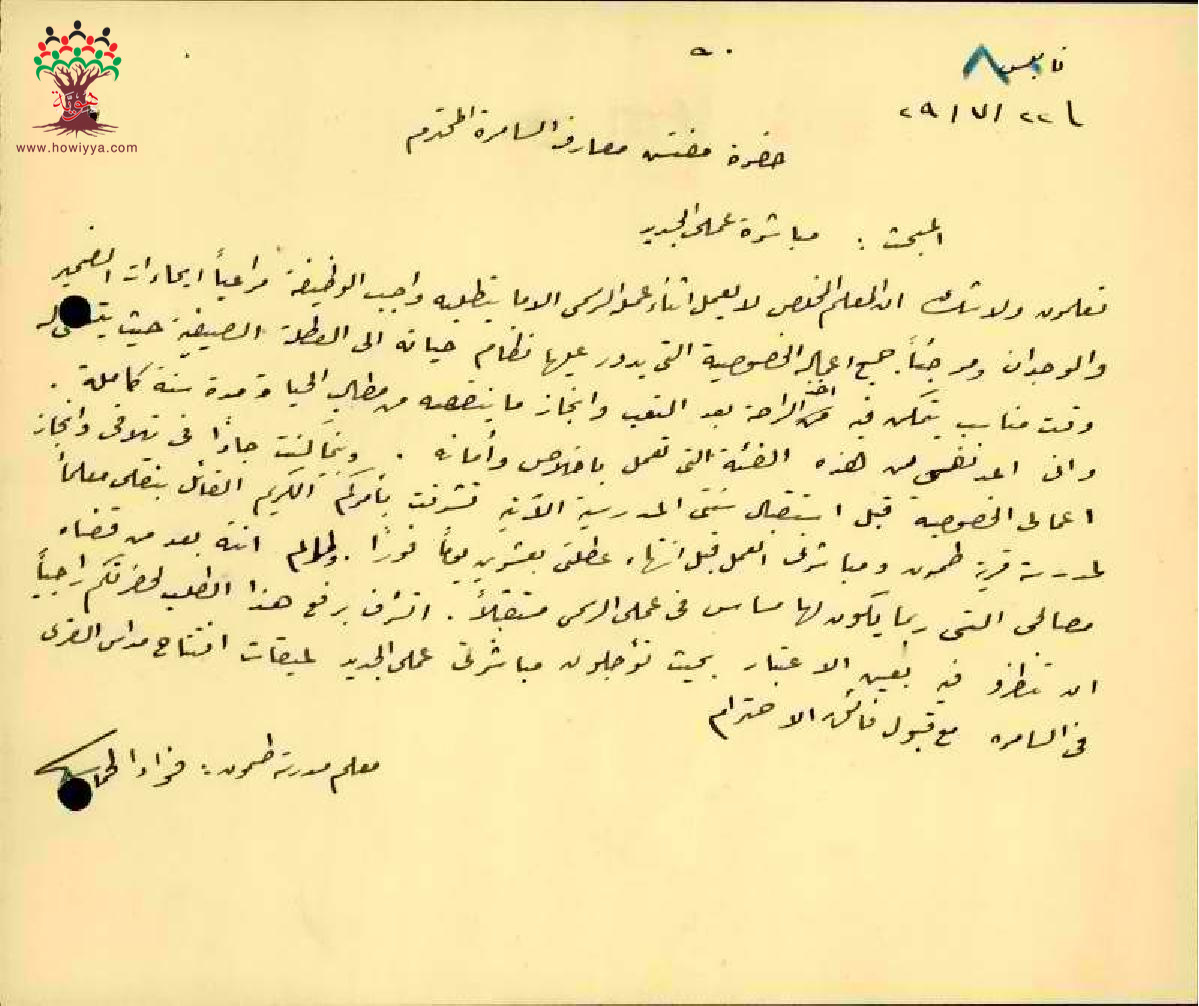 هوية
www.howiyya.com
٩٠
نابلس
٢٢ / ٧ / ٢٩
حضرة مفتش معارف السامرة المحترم
المبحث : مباشرة عملي الجديد
تعلمون ولا شك ان المعلم المخلص لا يعمل اثناء عمله الرسمي الا ما يتطلبه واجب الوظيفة مراعياً ايحاءات الضمير
والوجدان ومرجئاً جميع اعماله الخصوصية التي يدور عليها نظام حياته الى العطلة الصيفية حيث يتسنى له
وقت مناسب يتمكن فيه من اخذ الراحة بعد التعب وانجاز ما ينقصه من مطاليب الحياة مدة سنة كاملة .
واني اعد نفسي من هذه الفئة التي تعمل باخلاص وأمانة . وبينما كنت جاداً في تلافي وانجاز
اعمالي الخصوصية قبل استقبال سنتي المدرسية الآتية تشرفت بأمركم الكريم القائل بنقلي معلماً
لمدرسة قرية طمون ومباشرتي العمل قبل انتهاء عطلتي بعشرين يوماً فوراً . ولما لم انته بعد من قضاء
مصالحي التي ربما يكون لها مساس في عملي الرسمي مستقبلاً . اتشرف برفع هذا الطلب لحضرتكم راجياً
ان تنظروا فيه بعين الاعتبار بحيث تؤجلون مباشرتي عملي الجديد لميقات افتتاح مدارس القرى
في السامرة مع قبول فائق الاحترام
معلم مدرسة طمون : فؤاد